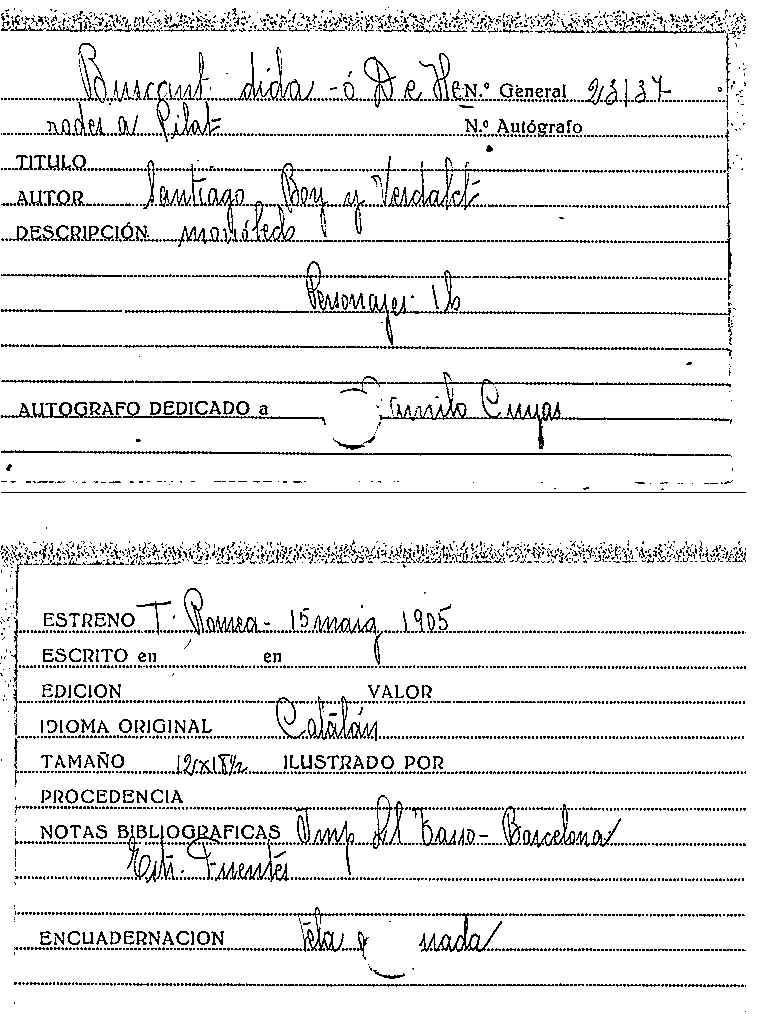 Buscant dida -ó De He N.º General 23137
rodes a Pilat N.º Autógrafo
TITULO
AUTOR Santiago Boy y Verdalet
DESCRIPCIÓN monóleds
Personajes: 16
AUTOGRAFO DEDICADO a Camilo Cuyas
ESTRENO T. Romea - 15 maig 1905
ESCRITO en en
EDICION VALOR
IDIOMA ORIGINAL Catalán
TAMAÑO 12x18½ ILUSTRADO POR
PROCEDENCIA
NOTAS BIBLIOGRAFICAS Imp Tasso - Barcelona
Edt. Fuentes
ENCUADERNACION tela